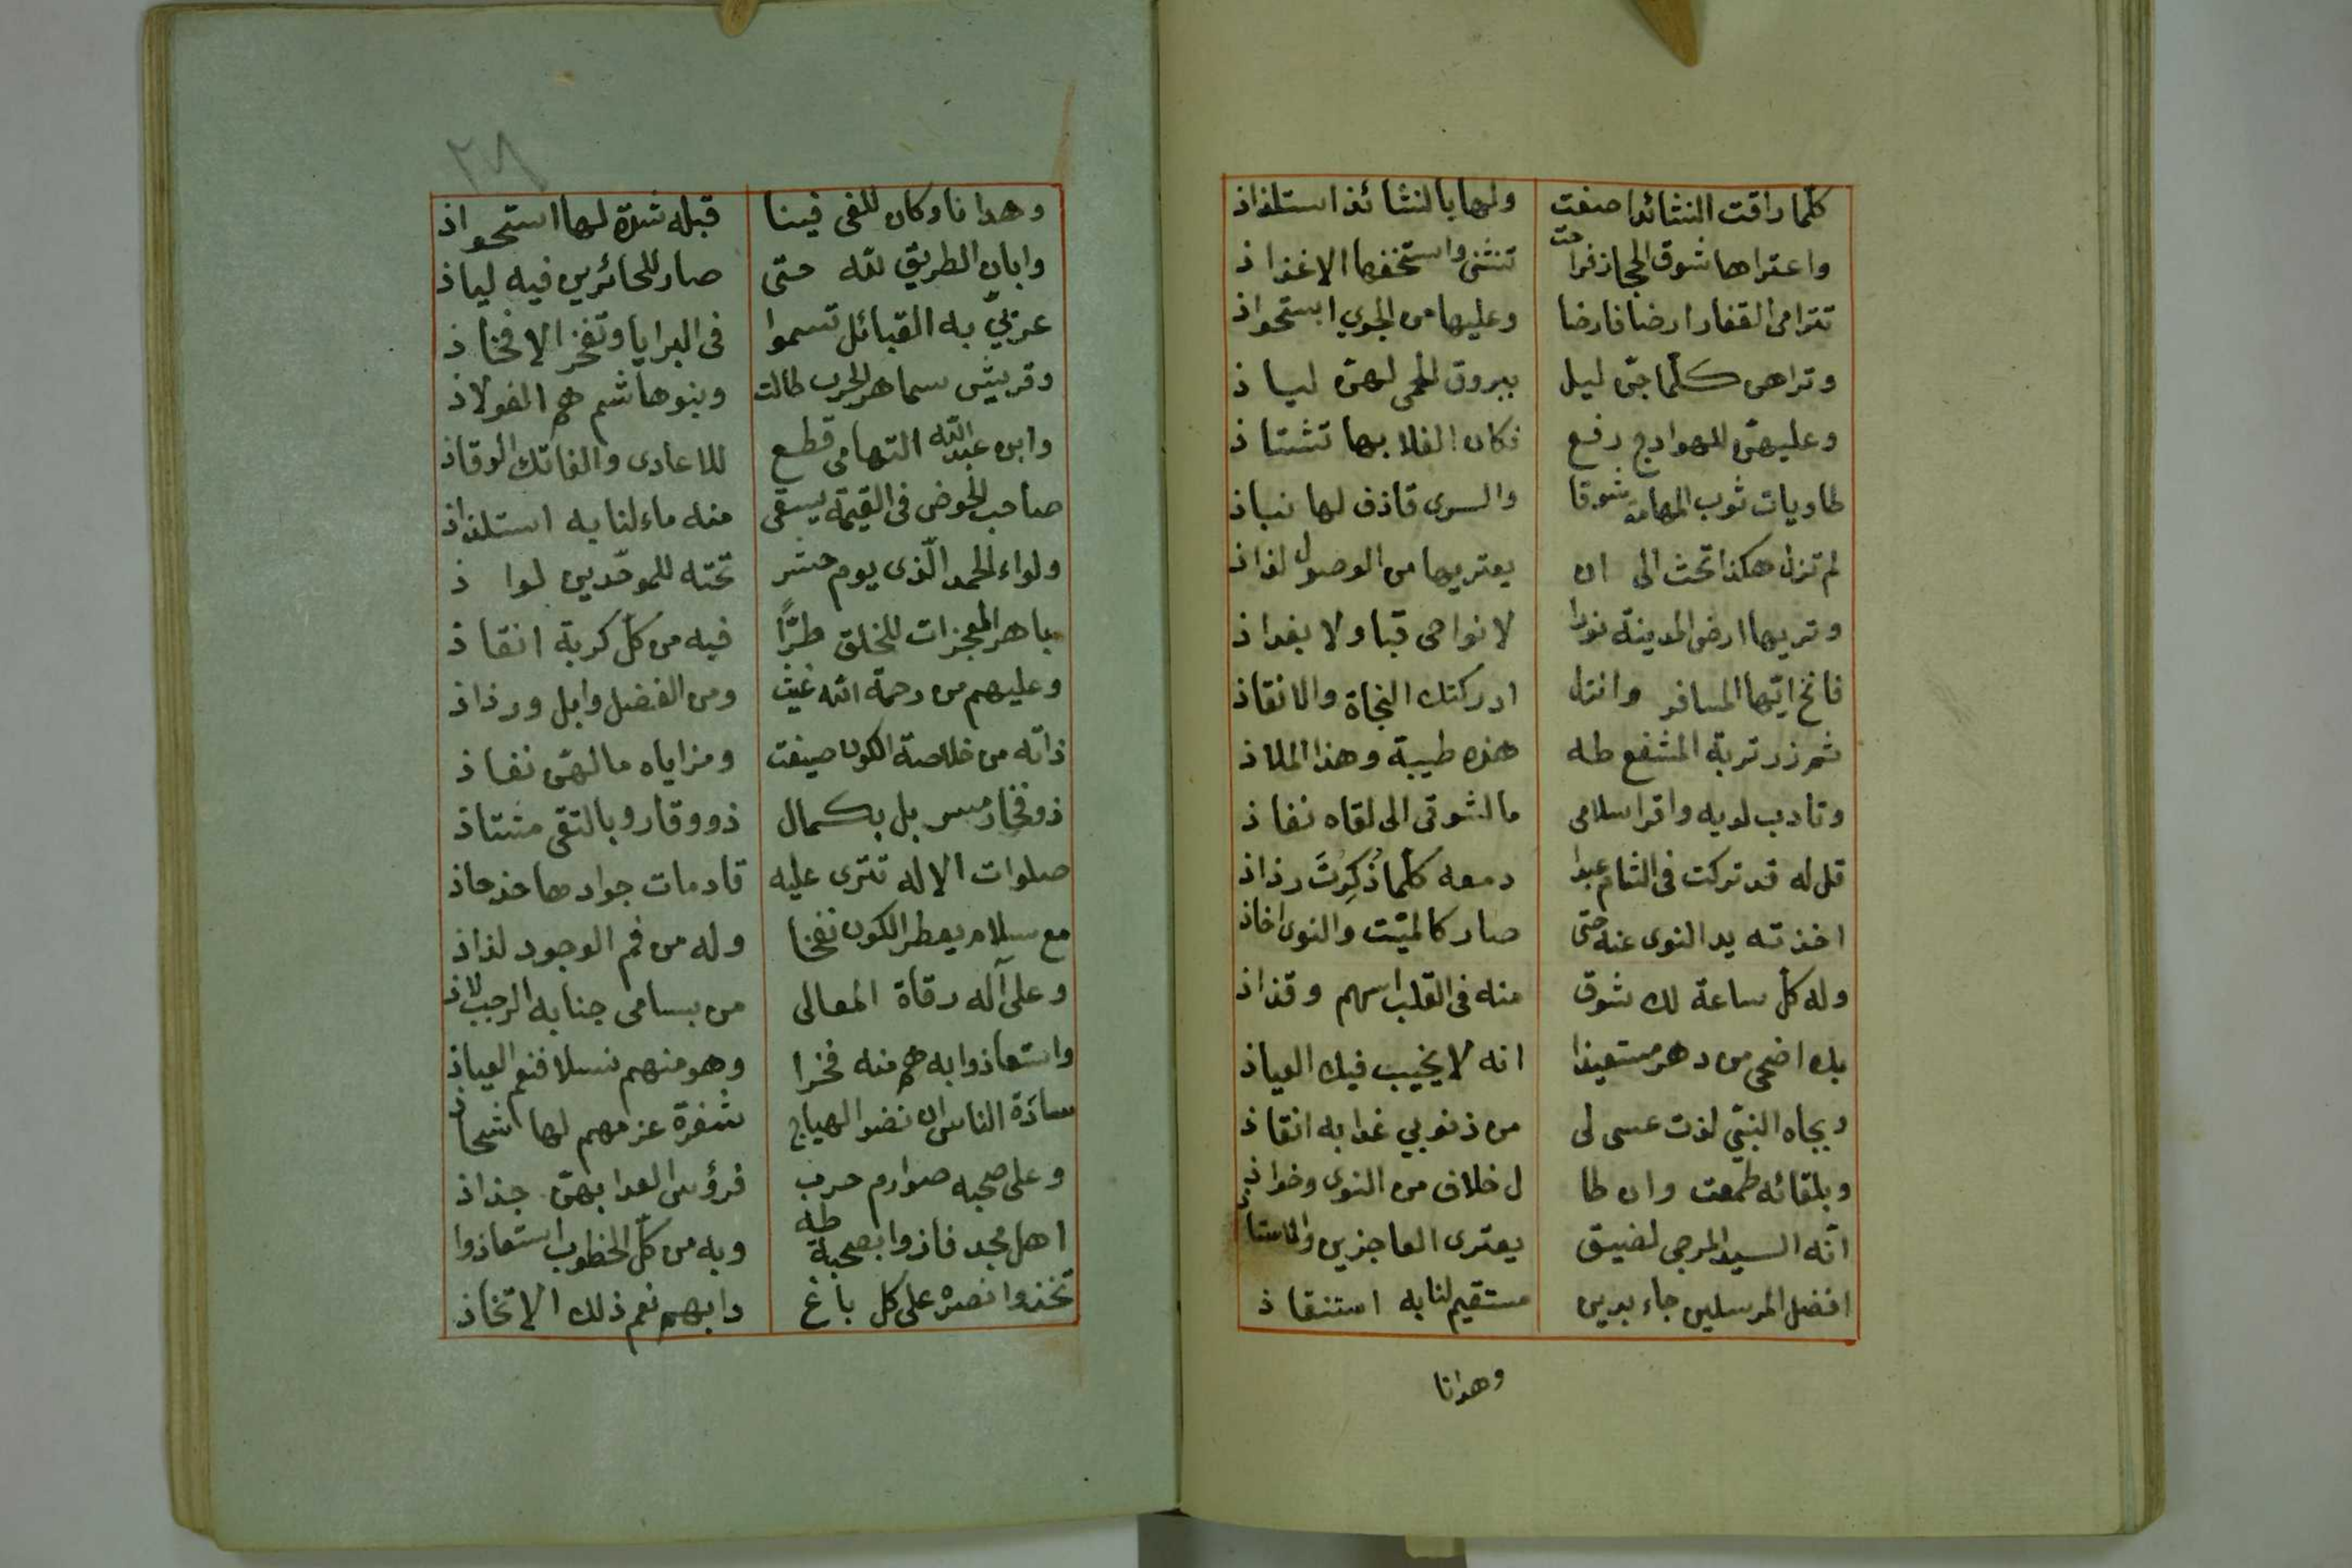 كلّما راقت النشائد اصغت ولها بالنشائد استلذاذ
واعتراها شوق الحجاز فراحت تنثنى واستخفها الاغذاذ
تترامى القفار ارضا فارضا وعليها من الجوي استحواذ
وتراهن كلّما جنّ ليل ببروق الحمى لهنّ لياذ
وعليهنّ الهوادج رفع فكان الفلا بها تشتاذ
طاويات ثوب المهامه شوقا والسرى قاذف لها نباذ
لم تزل هكذا تحث الى ان يعتريها من الوصول لذاذ
وتريها ارض المدينة نورا لا نواحى قبا ولا بغداذ
فانخ ايّها المسافر وانزل ادركتك النجاة والانقاذ
ثم زر تربة المشفع طه هذه طيبة وهذا الملاذ
وتادب لديه واقرا سلامى ما لشوقى الى لقاه نفاذ
قل له قد تركت فى الشام عبدا دمعه كلّما ذُكِرْتَ رذاذ
اخذته يد النوى عنه حتى صار كالميّت والنوى اخاذ
وله كل ساعة لك شوق منه فى القلب اسهم وقذاذ
بك اضحى من دهر مستعيذا انه لا يخيب فيك العياذ
وبجاه النبيّ لذت عسى لى من ذنوبي غدا به انقاذ
وبلقائه طمعت وان طا ل خلاف من النوى وخواذ
انّه السيد المرجى لضيق يعترى العاجزين
افضل المرسلين جاء بدين مستقيم لنا به استنقاذ
وهدانا
٢٨
وهدانا وكان للغى فينا قبله شدة لها استحواذ
وابان الطريق لله حتى صار للحائرين فيه لياذ
عربيّ به القبائل تسموا فى البرايا وتفخر الافخاذ
وقريش سماهر الحرب طالت وبنو هاشم هم الفولاذ
وابن عبد الله التهامى قطع للاعادى والفاتك الوقاذ
صاحب الحوض فى القيمة يسقى منه ماء لنا به استلذاذ
ولواء الحمد الّذى يوم حشر تحته للموحّدين لواذ
باهر المعجزات للخلق طرًّا فيه من كلّ كربة انقاذ
وعليهم من رحمة الله غيث ومن الفضل وابل ورذاذ
ذاته من خلاصة الكون صيغت ومزاياه ما لهنّ نفاذ
ذو فخار مس بل بكمال ذو وقار وبالتقى مشتاذ
صلوات الاله تترى عليه قادمات جوادها حذحاذ
مع سلام يعطر الكون نفخا وله من فم الوجود لذاذ
وعلى آله رقاة المعالى من بسامى جنابه الرحب لاذ
واستعاذوا به هم منه فخرا وهو منهم نسلا فنعم العياذ
سادَة الناس ان نضوا لهياج شفرة عزمهم لها شحاذ
وعلى صحبه صوارم حرب فرؤس العدا بهنّ جذاذ
اهل مجد فازوا بصحبة طه وبه من كلّ الخطوب استعاذوا
تخذوا نصره على كل باغ دابهم نعم ذلك الاتخاذ